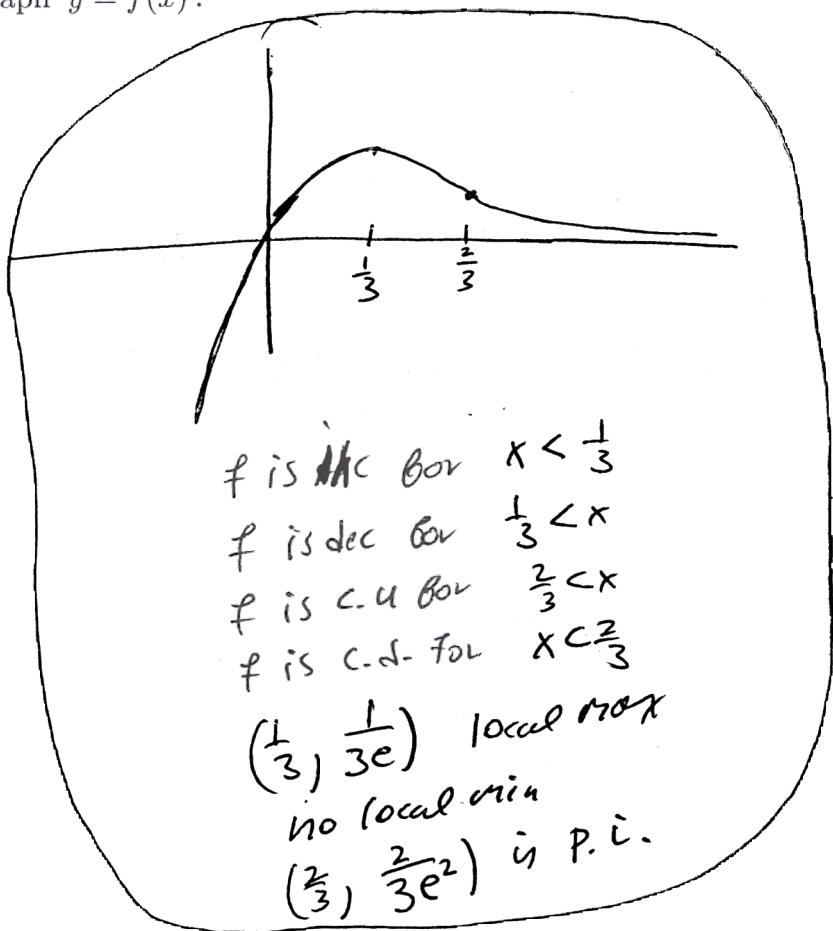 aph y = f(x).
1/3 2/3
f is inc for x < 1/3
f is dec for 1/3 < x
f is c.u for 2/3 < x
f is c.d. for x < 2/3
(1/3, 1/(3e)) local max
no local min
(2/3, 2/(3e²)) is p.i.